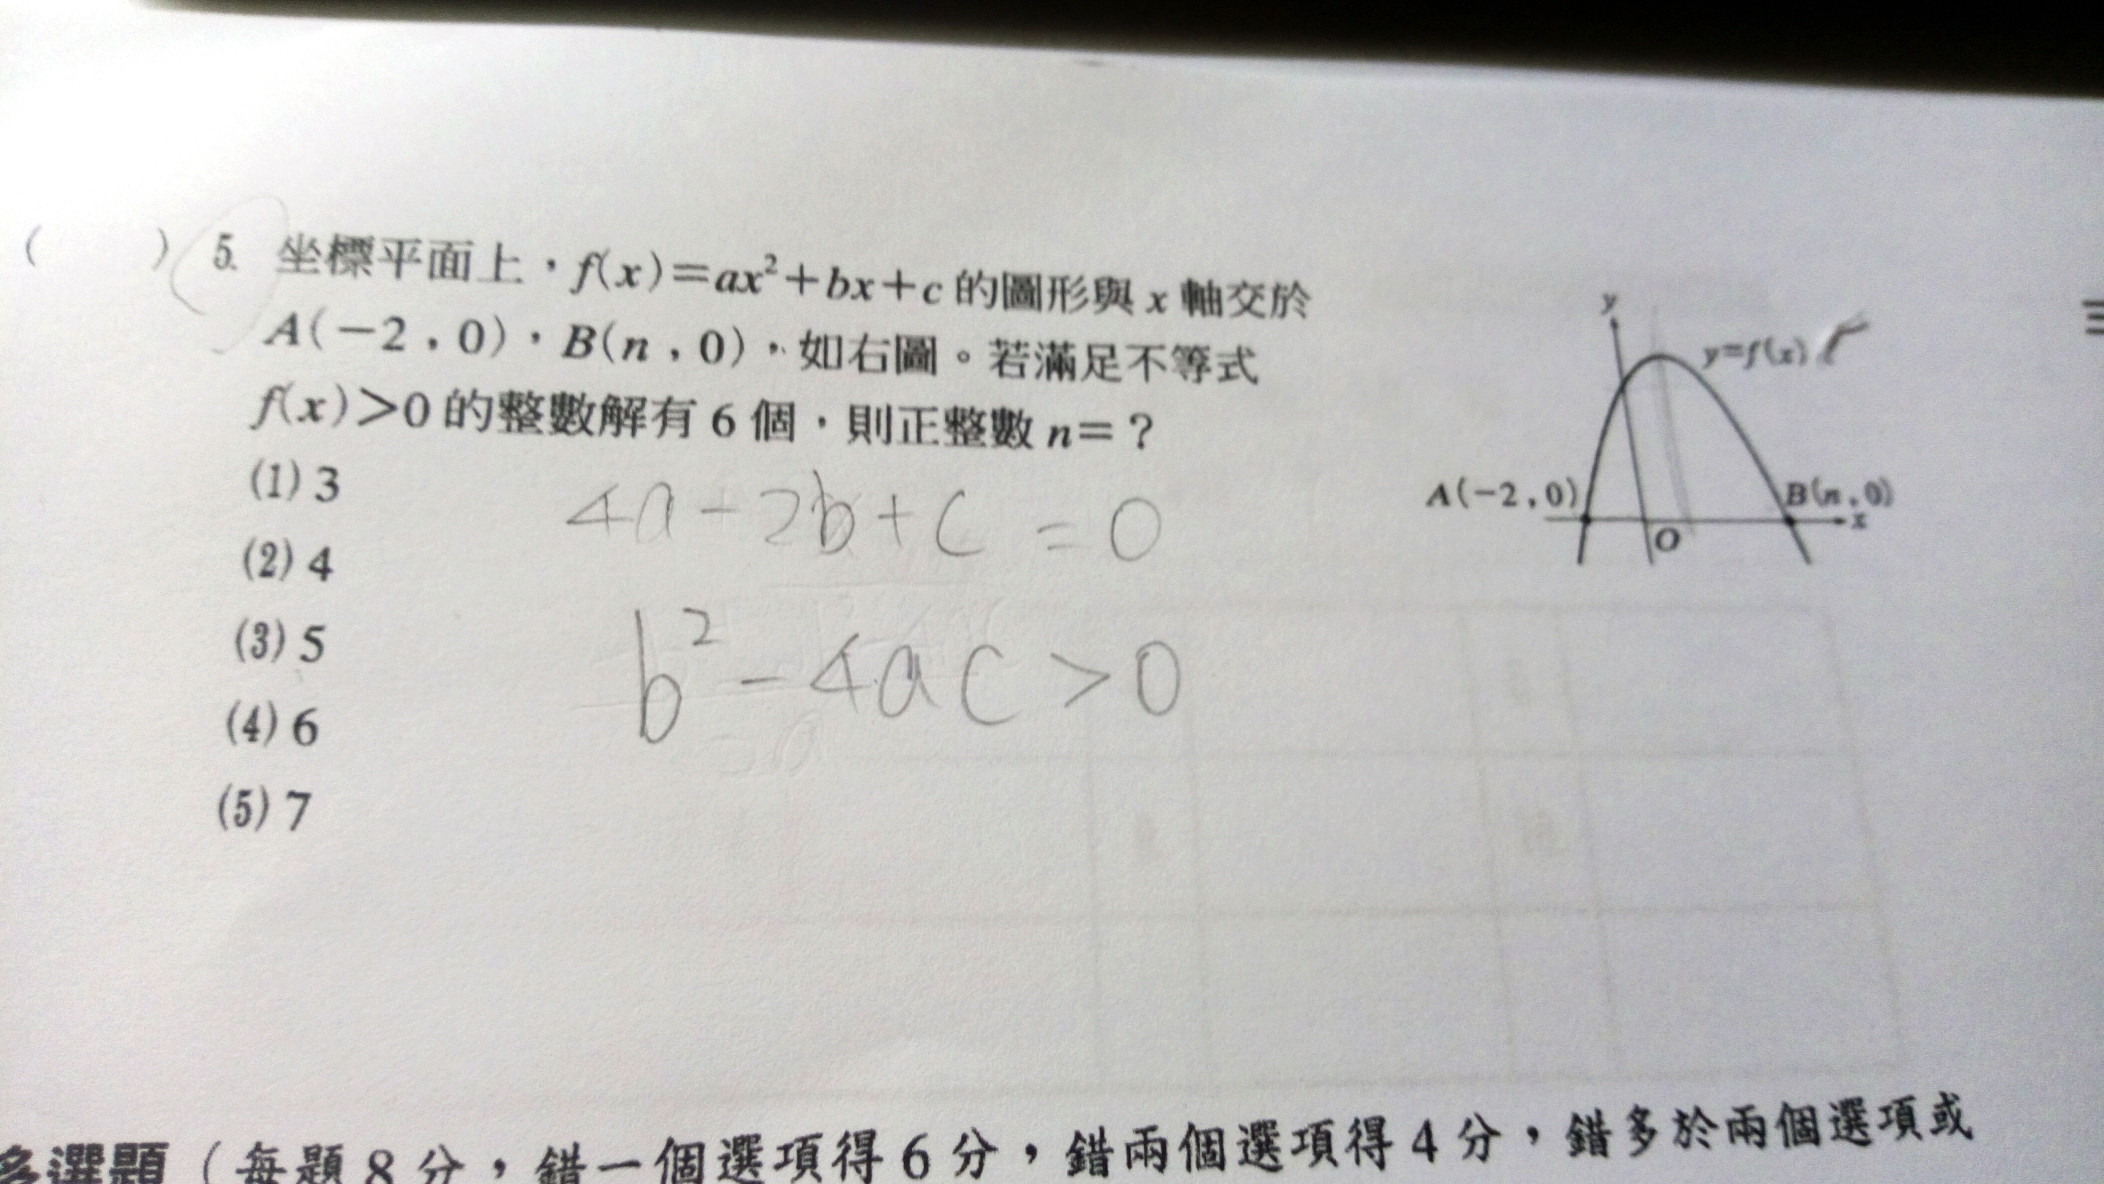 (　) 5. 坐標平面上，f(x)=ax²+bx+c 的圖形與 x 軸交於
A(-2，0)，B(n，0)，如右圖。若滿足不等式
f(x)>0 的整數解有 6 個，則正整數 n=？
(1) 3
(2) 4
(3) 5
(4) 6
(5) 7
4a-2b+c=0
b²-4ac>0
y
y=f(x)
A(-2,0)
B(n,0)
x
O
三
多選題（每題 8 分，錯一個選項得 6 分，錯兩個選項得 4 分，錯多於兩個選項或